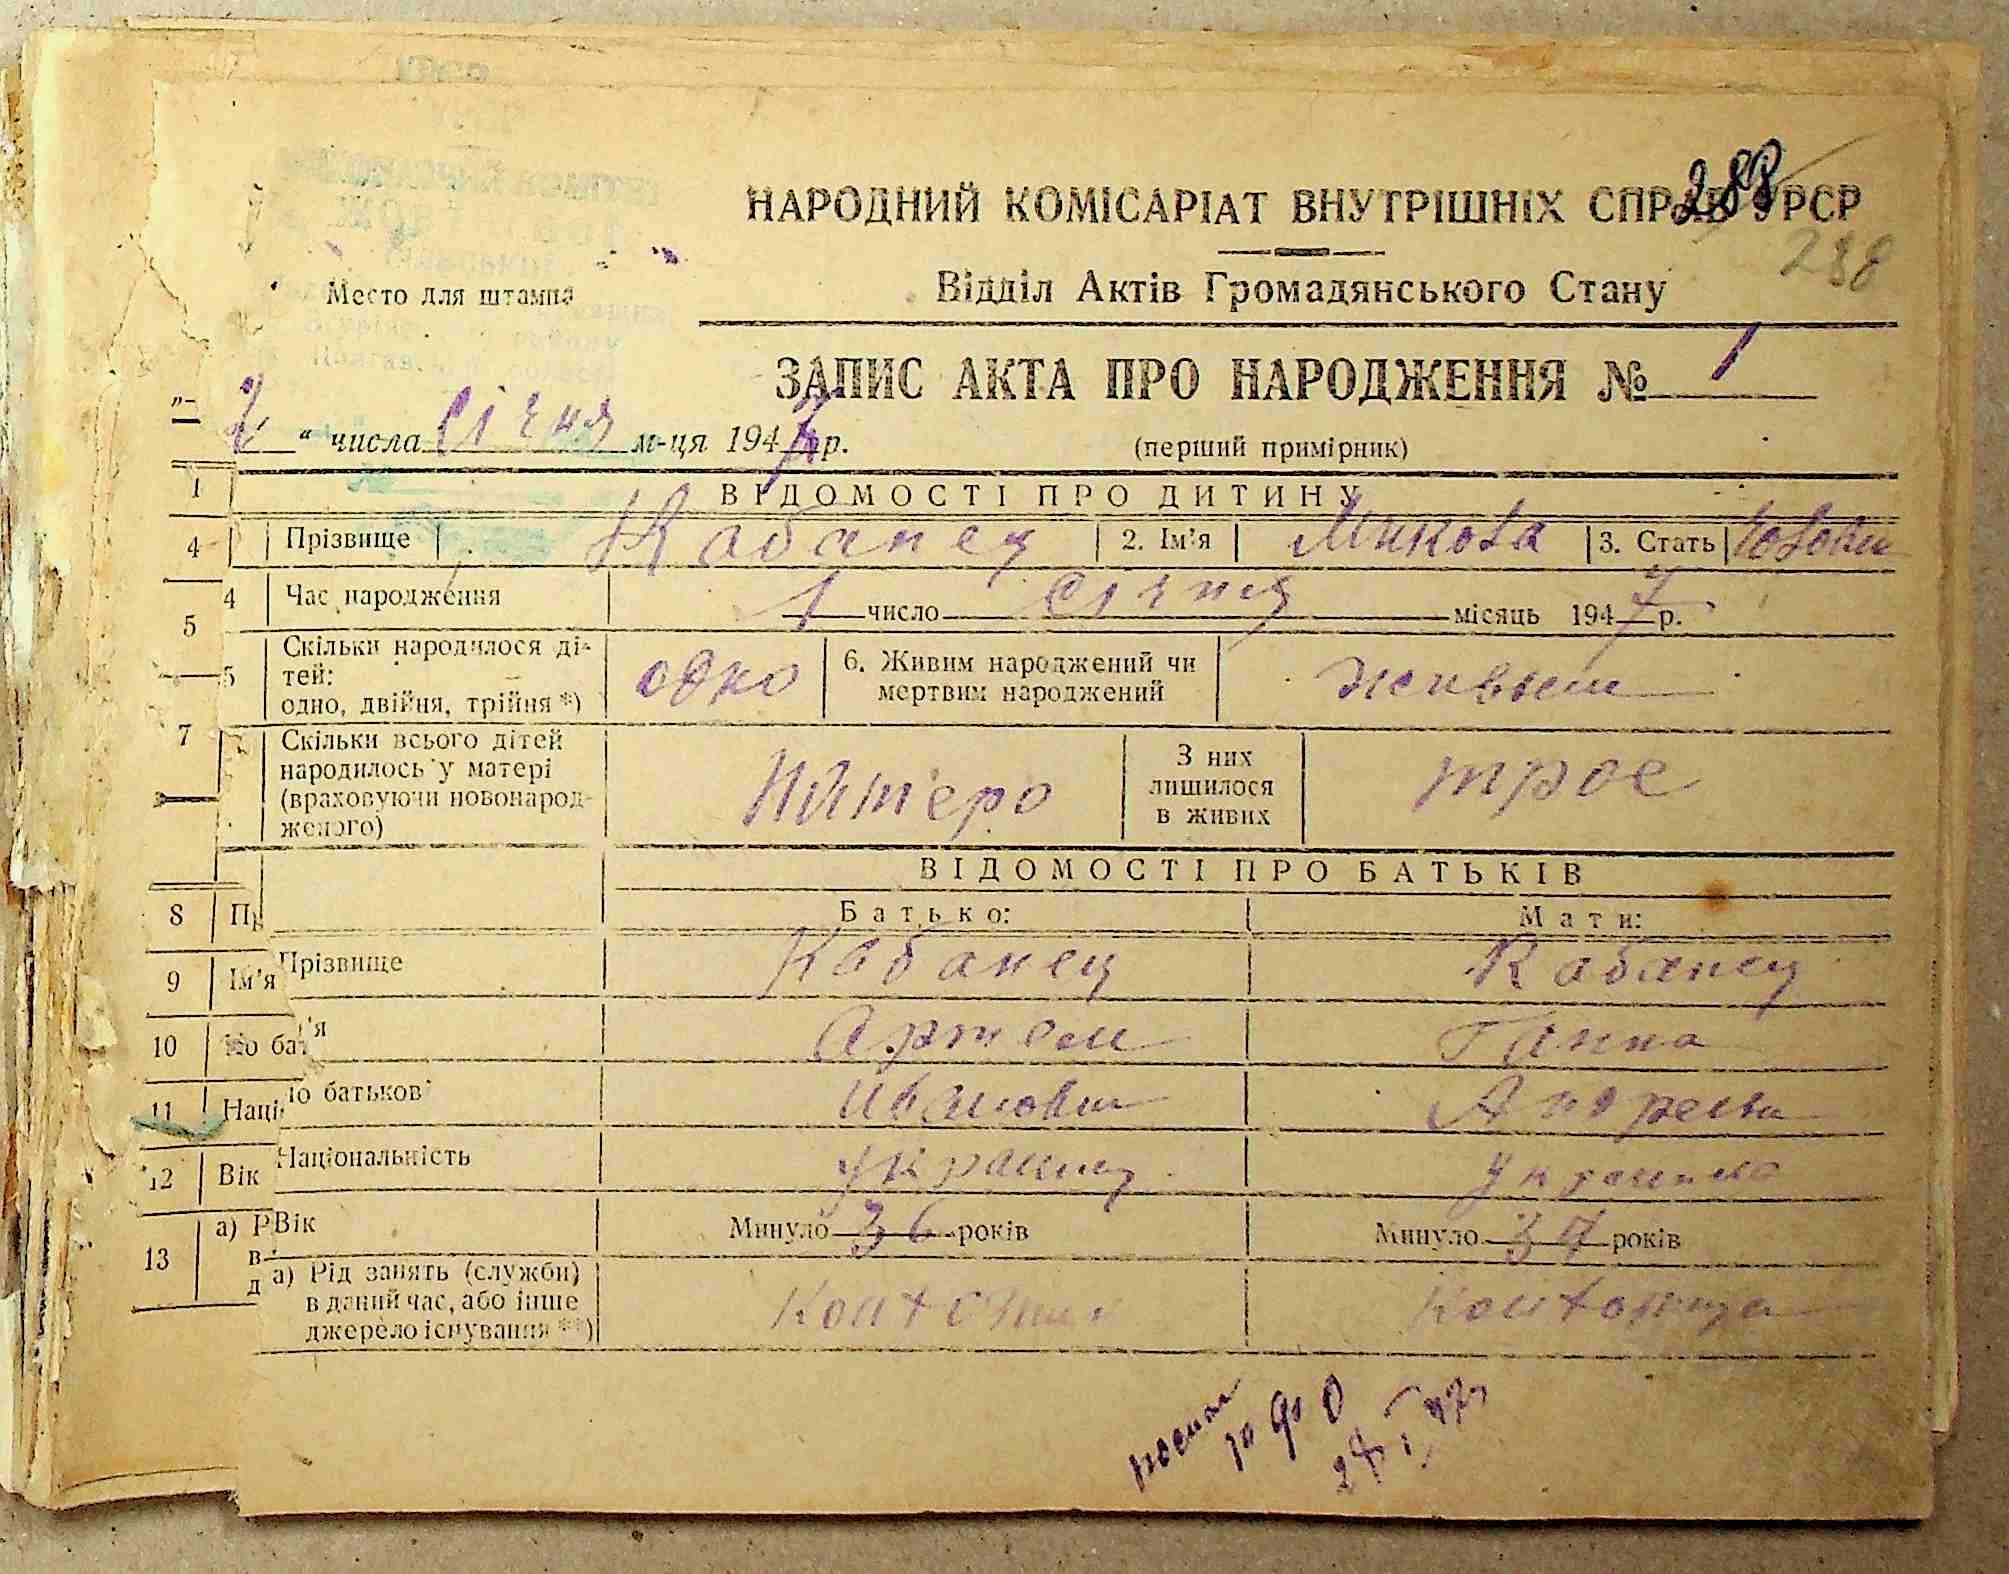 288
НАРОДНИЙ КОМІСАРІАТ ВНУТРІШНІХ СПРАВ УРСР
238
Место для штампа
Відділ Актів Громадянського Стану
ЗАПИС АКТА ПРО НАРОДЖЕННЯ № 1
2 " числа січня м-ця 1947 р. (перший примірник)
1 ВІДОМОСТІ ПРО ДИТИНУ
4 Прізвище Кабанец 2. Ім'я Микола 3. Стать
4 Час народження 1 число січня місяць 1947 р.
5
5 Скільки народилося ді-
тей:
одно, двійня, трійня *) одно 6. Живим народжений чи
мертвим народжений живым
7 Скільки всього дітей
народилось у матері
(враховуючи новонарод-
женого) Пятеро З них
лишилося
в живих трое
ВІДОМОСТІ ПРО БАТЬКІВ
8 Пр Батько: Мати:
9 Ім'я Прізвище Кабанец Кабанец
10 По бат 'я Артем Ганна
11 Наці по батькові Иванович Андреевна
12 Вік Національність украинец украинка
13 а) Р Вік Минуло 36 років Минуло 37 років
в
д а) Рід занять (служби)
в даний час, або інше
джерело існування **)